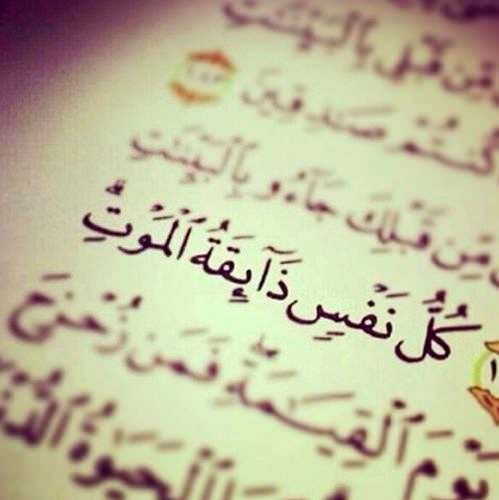 مِّن قَبْلِى بِٱلْبَيِّنَٰتِ
كُنتُمْ صَٰدِقِينَ ١٨٣
مِّن قَبْلِكَ جَآءُو بِٱلْبَيِّنَٰتِ
كُلُّ نَفْسٍ ذَآئِقَةُ ٱلْمَوْتِ ۗ
يَوْمَ ٱلْقِيَٰمَةِ ۖ فَمَن زُحْزِحَ
ٱلْحَيَوٰةُ ٱلدُّنْيَآ